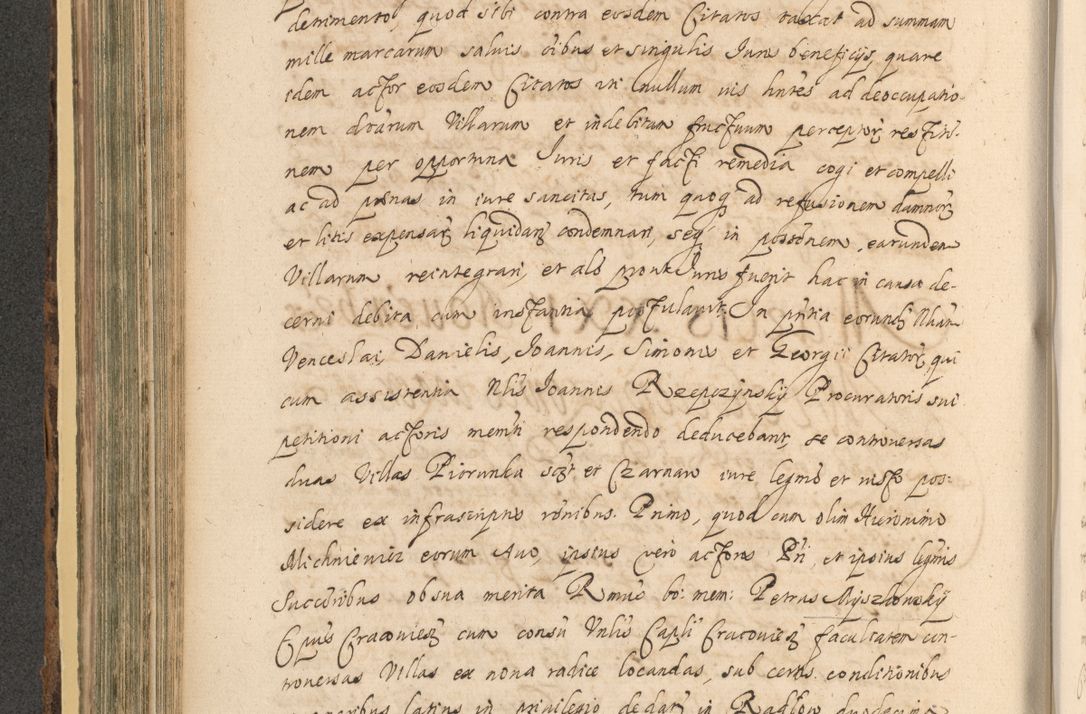 detrimento, quod sibi contra eosdem Citatos taxat ad summam
mille marcarum salvis oibus et singulis Juris beneficijs, quare
idem actor eosdem Citatos in nullum ius hntes ad deoccupatio-
nem dictarum Villarum et indebitum fructuum perceptor restitu-
nem per opportuna Juris et facti remedia cogi et compelli
ac ad pœnas in iure sancitas, tum quoq ad refusionem damnor
et litis expensar liquidar condemnari, seq in possonem earundem
Villarum reintegrari, et als prout Juris fuerit hac in causa de-
cerni debita cum instantia postulavit. In pntia eorund Nbiliu
Venceslai, Danielis, Joannis, Simonis et Georgii Citator, qui
cum assistentia Nlis Joannis Rzepczynskij Procuratoris sui
petitioni actoris memti respondendo deducebant, se controversas
duas Villas Piorunka sczt et Czarnaw iure legmo et iusto pos-
sidere ex infrascriptis ronibus. Primo, quod cum olim Hieronimo
Michniewicz eorum Avo, ipsius vero actoris Pri, et ipsius legmis
Succoribus ob sua merita Rmus bo: mem: Petrus Myszkowskij
Epus Cracovien cum consu Vnlis Capli Cracovien facultatem con-
troversas Villas ex nova radice locandas, sub certis conditionibus
latius in privilegio de dat in Radłow duodecima